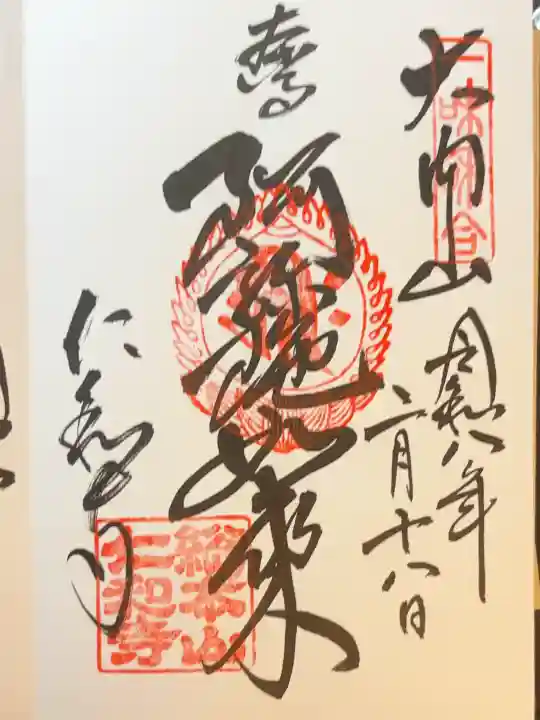 一味和合
大内山
令和八年
二月十八日
阿弥陀如来
仁和寺
総本山
仁和寺